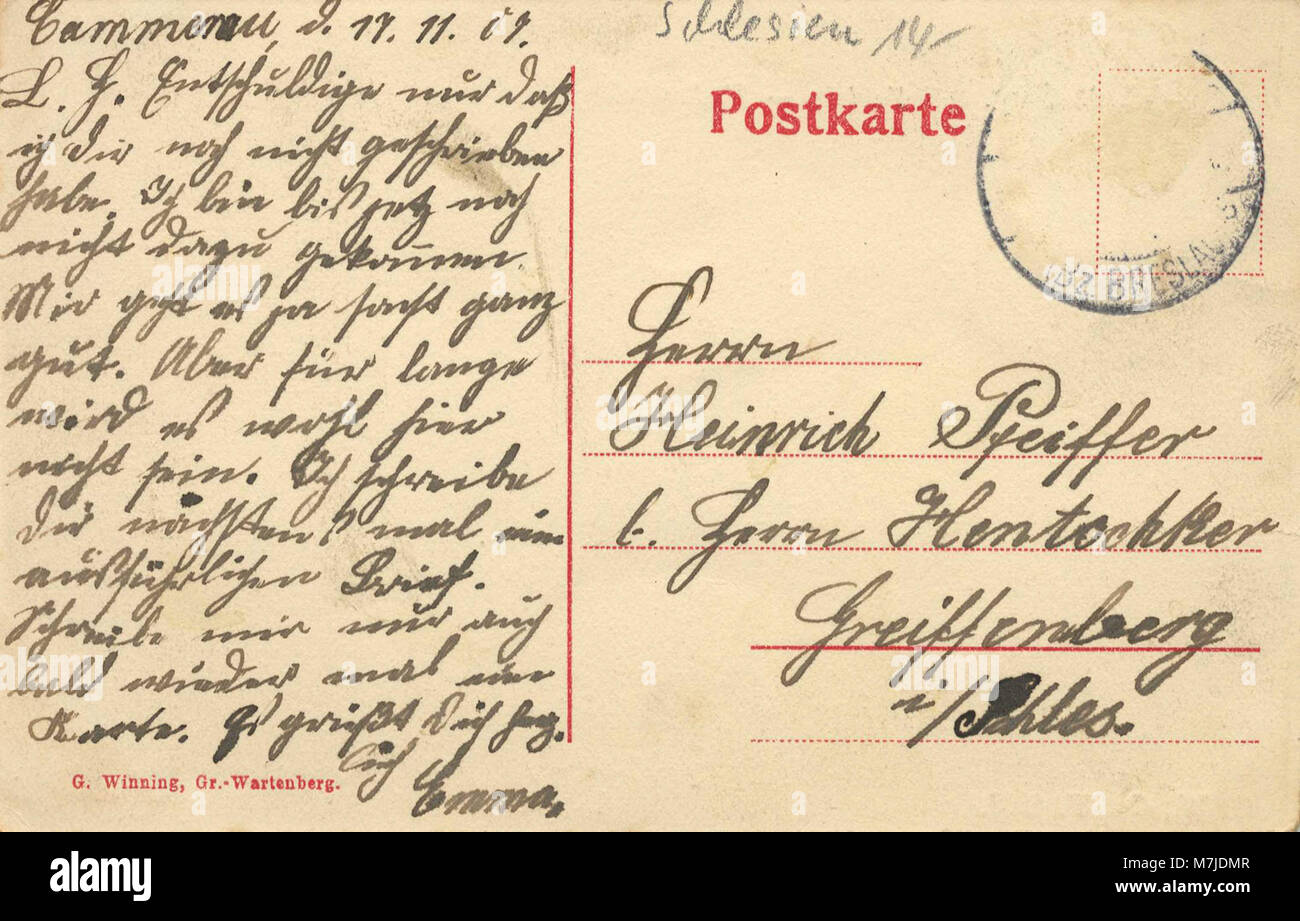 Cammerau, d. 17. 11. 09.
L. H. Entschuldige nur daß
ich dir noch nicht geschrieben
habe. Ich bin bis jetz noch
nicht dazu gekommen.
Mir geht es ja sacht ganz
gut. Aber für lange
wird es wohl hier
nicht sein. Ich schreibe
dir nächsten mal ein
ausführlichen Brief.
Schreibe mir nur auch
bald wieder mal eine
Karte. Es grüßt Dich herz
lich
Emma.
G. Winning, Gr.-Wartenberg.
Schlesien 14-
Postkarte
BRESLAU
Herrn
Heinrich Pfeiffer
b. Herrn Hentschker
Greiffenberg
i/Schles.
alamy
Image ID: M7JDMR
www.alamy.com